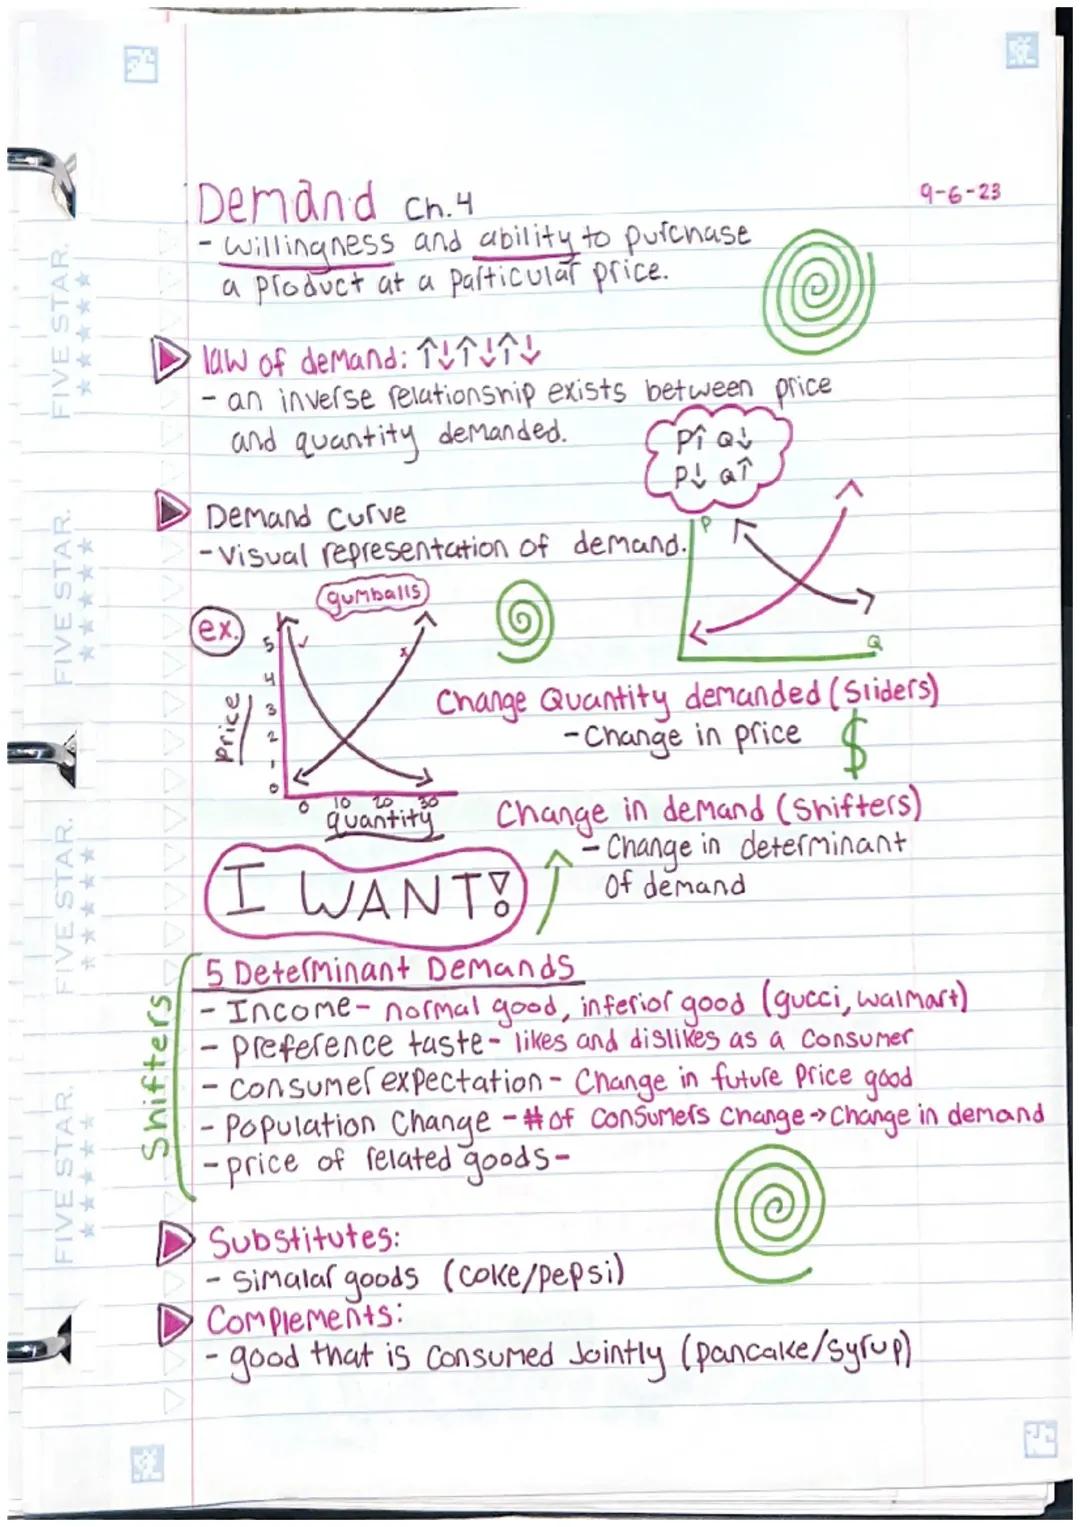 Demand Ch.4
9-6-23
- willingness and ability to purchase
a product at a particular price.
law of demand: ↑↓↑↓↑↓
- an inverse relationship exists between price
and quantity demanded.
P↑ Q↓
P↓ Q↑
Demand Curve
- Visual representation of demand.
P
Q
ex.
gumballs
5
4
3
2
1
0
price
0 10 20 30
quantity
Change Quantity demanded (Sliders)
- Change in price $
Change in demand (Shifters)
- Change in determinant
Of demand
I WANT!
Shifters
5 Determinant Demands
- Income - normal good, inferior good (gucci, walmart)
- preference taste - likes and dislikes as a consumer
- consumer expectation - Change in future price good
- Population Change - # of consumers change → Change in demand
- price of related goods -
Substitutes:
- Simalar goods (coke/pepsi)
Complements:
- good that is consumed Jointly (pancake/syrup)
FIVE STAR.
FIVE STAR.
FIVE STAR.
FIVE STAR.